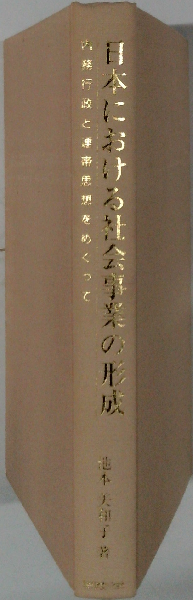 日本における社会事業の形成
内務行政と連帯思想をめぐって
池本美和子 著